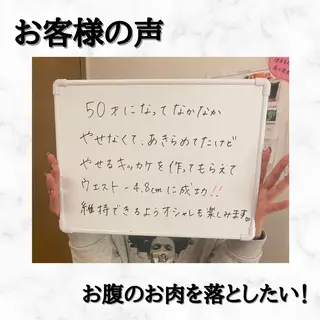 お客様の声
50才になってなかなか
やせなくて、あきらめてたけど
やせるキッカケを作ってもらえて
ウエスト-4.8cmに成功!!
維持できるようオシャレも楽しみます♡
お腹のお肉を落としたい!